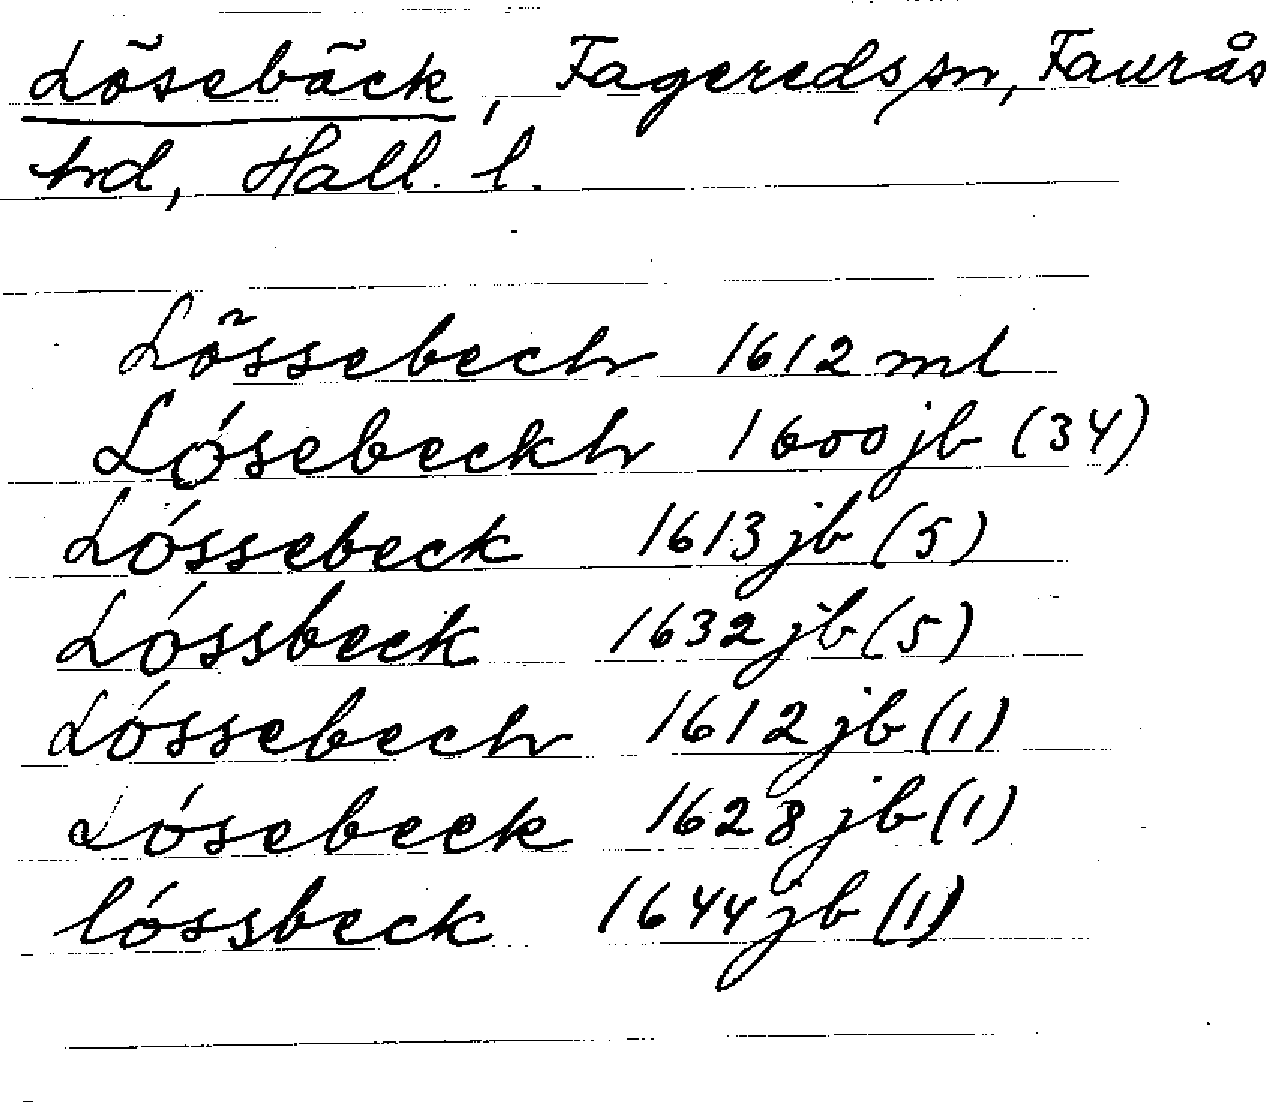 Lösebäck, Fagereds sn, Faurås
hd, Hall. l.
Lössebech 1612 ml
Lósebeckh 1600 jb (34)
Lóssebeck 1613 jb (5)
Lóssbeck 1632 jb (5)
Lóssebech 1612 jb (1)
Lósebeck 1628 jb (1)
lóssbeck 1644 jb (1)